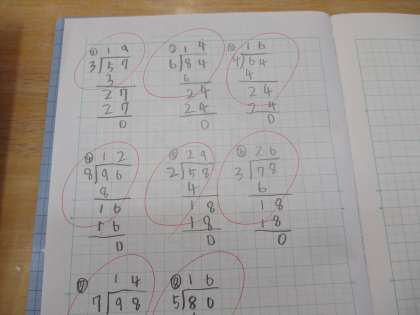 ① 19
3)57
3
27
27
0
② 14
6)84
6
24
24
0
③ 16
4)64
4
24
24
0
④ 12
8)96
8
16
16
0
⑤ 29
2)58
4
18
18
0
⑥ 26
3)78
6
18
18
0
⑦ 14
7)98
⑧ 16
5)80